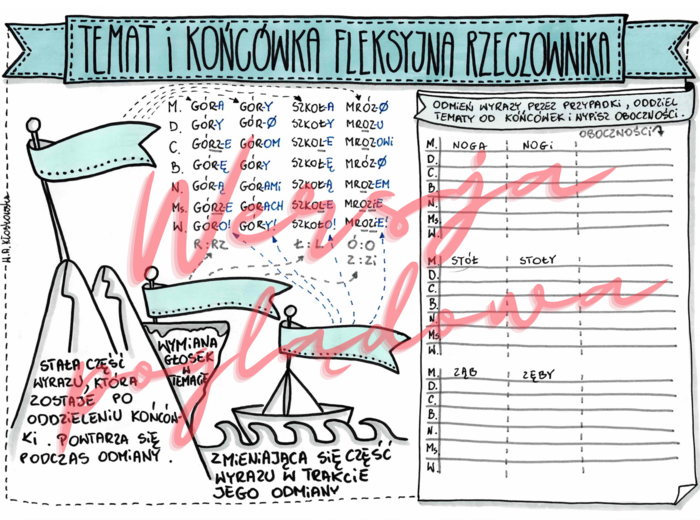 TEMAT i KOŃCÓWKA FLEKSYJNA RZECZOWNIKA
M. GÓR-A GÓR-Y SZKOŁ-A MRÓZ-Ø
D. GÓR-Y GÓR-Ø SZKOŁ-Y MROZ-U
C. GÓRZ-E GÓR-OM SZKOL-E MROZ-OWI
B. GÓR-Ę GÓR-Y SZKOŁ-Ę MRÓZ-Ø
N. GÓR-Ą GÓR-AMI SZKOŁ-Ą MROZ-EM
Ms. GÓRZ-E GÓR-ACH SZKOL-E MROZI-E
W. GÓR-O! GÓR-Y! SZKOŁ-O! MROZI-E!
R:RZ Ł:L Ó:O
Z:Zi
STAŁA CZĘŚĆ
WYRAZU, KTÓRA
ZOSTAJE PO
ODDZIELENIU KOŃCÓW-
KI. POWTARZA SIĘ
PODCZAS ODMIANY.
WYMIANA
GŁOSEK
W
TEMACIE
ZMIENIAJĄCA SIĘ CZĘŚĆ
WYRAZU W TRAKCIE
JEGO ODMIANY
ODMIEŃ WYRAZY PRZEZ PRZYPADKI, ODDZIEL
TEMATY OD KOŃCÓWEK I WYPISZ OBOCZNOŚCI.
OBOCZNOŚCI
M. NOGA NOGI
D.
C.
B.
N.
Ms.
W.
M. STÓŁ STOŁY
D.
C.
B.
N.
Ms.
W.
M. ZĄB ZĘBY
D.
C.
B.
N.
Ms.
W.
Wersja
poglądowa